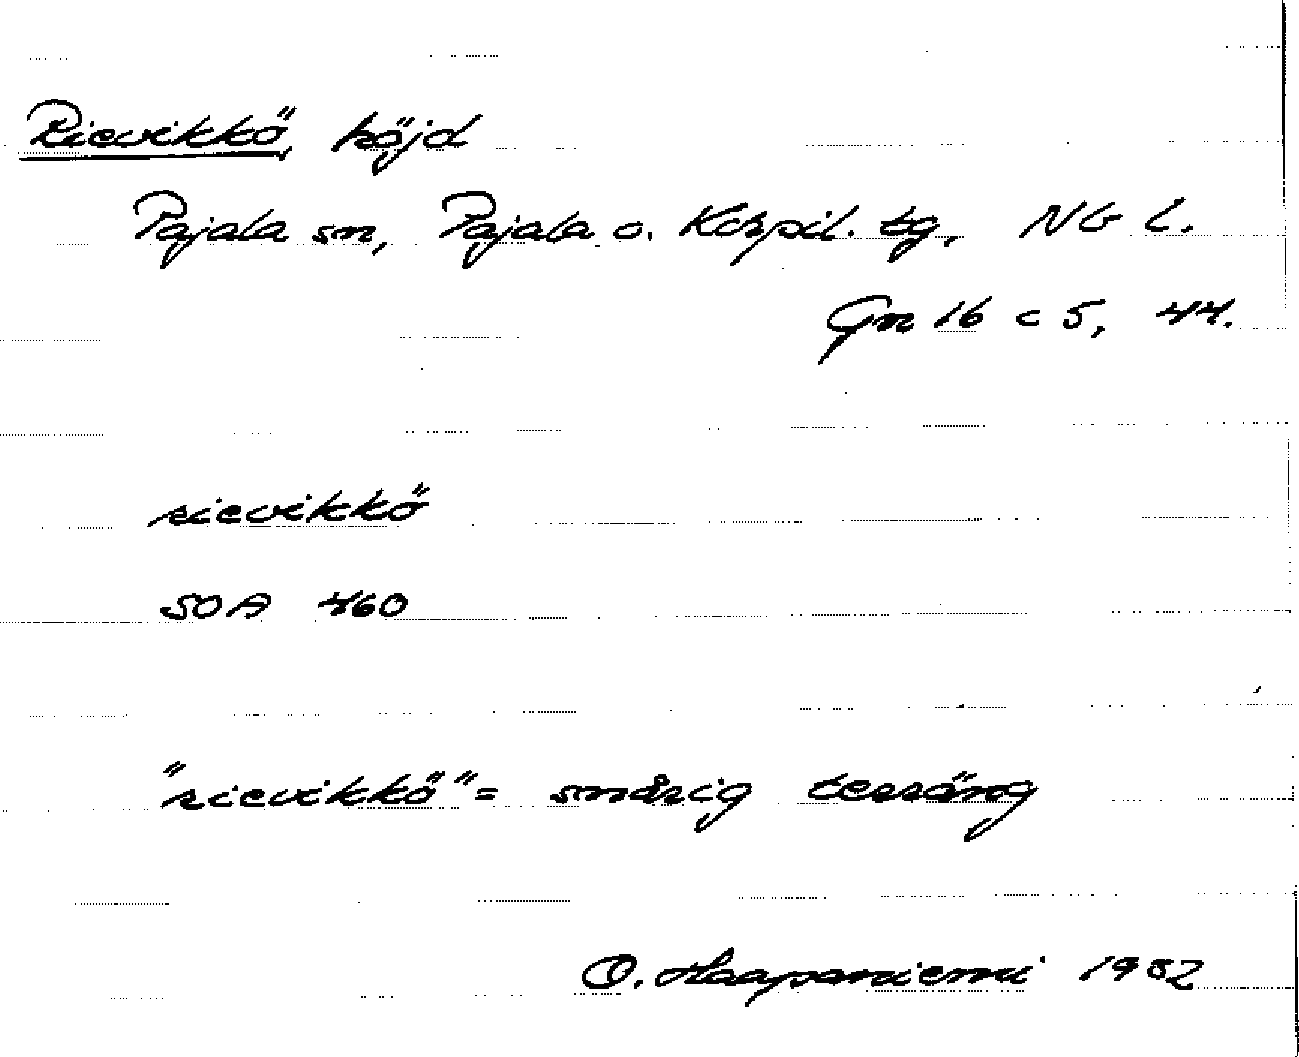 Rievikkö, höjd
Pajala sn, Pajala o. Korpil. tg, NB l.
Gn 16 c 5, 44.
rievikkö
SOA 460
"rievikkö" = småris terräng
O. Haapaniemi 1982